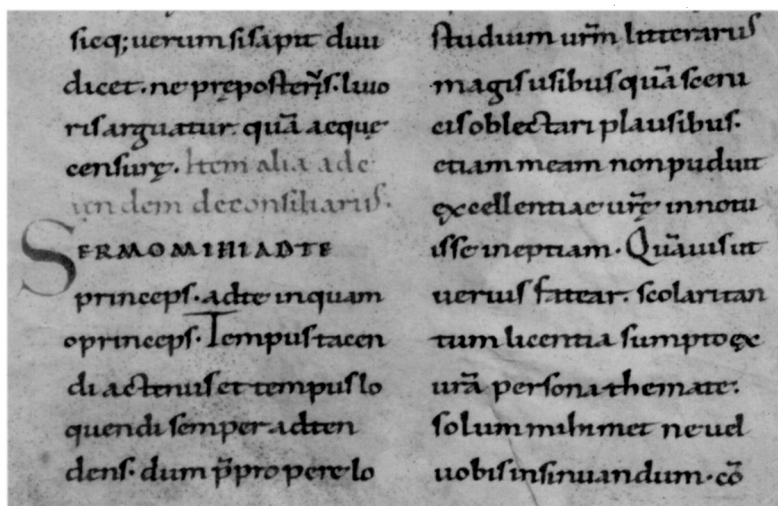 sicq; uerum si sapit diiu
dicet. ne pręposterı̃s. liuo
ris arguatur. quā aeque
censurę. Item alia ad e
un dem deconsiliariis.
SERMO MIHI AD TE
princeps. ad te inquam
o princeps. Tempus tacen
di actenus et tempus lo
quendi semper adten
dens. dum p̄propere lo
studium urm̄ litterariis
magis usibus quā sceni
cis oblectari plausibus.
etiam meam non puduit
excellentiae urę̄ innotu
isse ineptiam. Quāuis ut
uerius fatear. scolari tan
tum licentia sumpto ęx
urā persona themate.
solum mihimet ne uel
uobis insinuandum. cō